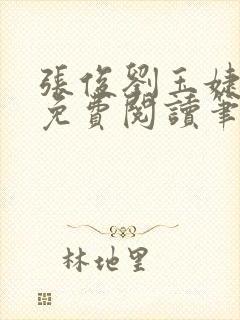 張俊劉玉婕
免費閱讀筆
林地里